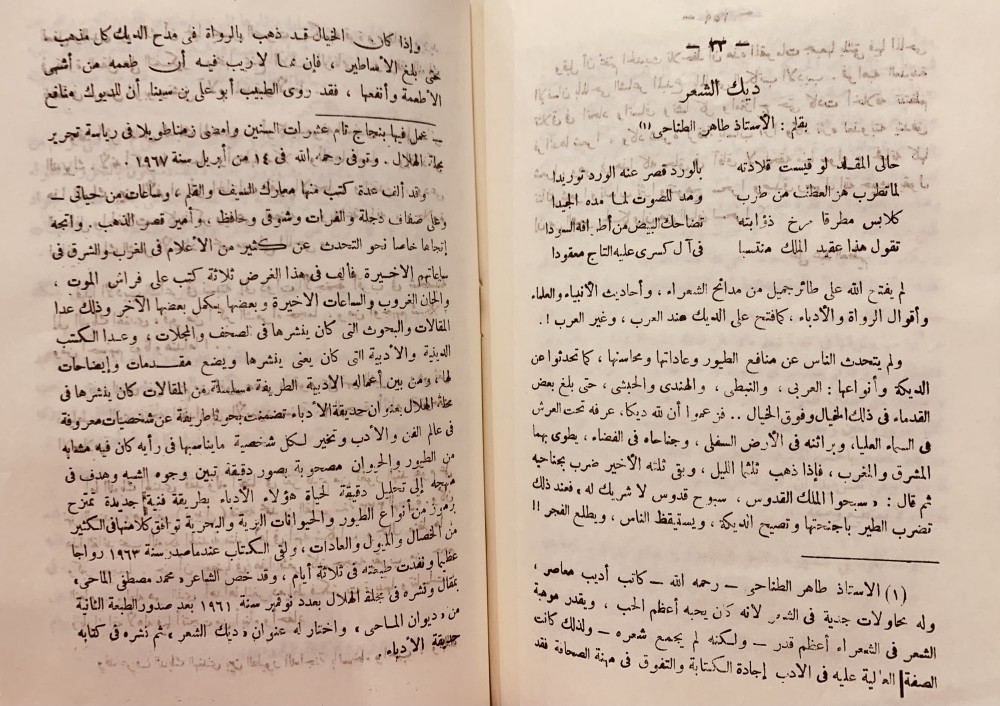 — ٣٣ —
ديك الشعر
بقلم : الأستاذ طاهر الطناحى (١)
حالى المقلد لو قيست قلادته    بالورد قصر عنه الورد توريدا
لما تطرب هز العطف من طرب    ومد للصوت لما مده الجيدا
كلابس مطرفا مرخ ذؤابته    تضاحك البيض من أطرافه السودا
تقول هذا عقيد الملك منتسبا    فى آل كسرى عليه التاج معقودا
لم يفتح الله على طائر جميل من مدائح الشعراء ، وأحاديث الأنبياء والعلماء
وأقوال الرواة والأدباء ، كما فتح على الديك عند العرب ، وغير العرب ! .
ولم يتحدث الناس عن منافع الطيور وعاداتها ومحاسنها ، كما تحدثوا عن
الديكة وأنواعها : العربى ، والنبطى ، والهندى والحبشى ، حتى بلغ بعض
القدماء فى ذلك الخيال وفوق الخيال . . فزعموا أن لله ديكا ، عرفه تحت العرش
فى السماء العليا ، وبراثنه فى الأرض السفلى ، وجناحاه فى الفضاء ، يطوى بهما
المشرق والمغرب ، فإذا ذهب ثلثا الليل ، وبقى ثلثه الأخير ضرب بجناحيه
ثم قال : « سبحوا الملك القدوس ، سبوح قدوس لا شريك له » فعند ذلك
تضرب الطير بأجنحتها وتصيح الديكة ، ويستيقظ الناس ، ويطلع الفجر !!
(١) الاستاذ طاهر الطناحى — رحمه الله — كاتب أديب معاصر ،
وله محاولات جدية فى الشعر لانه كان يحبه أعظم الحب ، ويقدر موهبة
الشعر فى الشعراء أعظم قدر — ولكنه لم يجمع شعره — ولذلك كانت
الصفة الغالبة عليه فى الادب إجادة الكتابة والتفوق فى مهنة الصحافة فقد
وإذا كان الخيال قد ذهب بالرواة فى مدح الديك كل مذهب ،
حتى بلغ الأساطير ، فإن مما لا ريب فيه أن طعمه من أشهى
الأطعمة وأنفعها ، فقد روى الطبيب أبو على بن سينا أن للديوك منافع
— عمل فيها بنجاح تام عشرات السنين وامضى زمنا طويلا فى رياسة تحرير
مجلة الهلال . وتوفى رحمه الله فى ١٤ من أبريل سنة ١٩٦٧ .
وقد ألف عدة كتب منها معارك السيف والقلم ، وساعات من حياتى —
وعلى ضفاف دجلة والفرات وشوقى وحافظ ، وأمير قصر الذهب . واتجه
إتجاها خاصا نحو التحدث عن كثير من الأعلام فى الغرب والشرق فى
ساعاتهم الاخيرة فألف فى هذا الغرض ثلاثة كتب على فراش الموت ،
والحان الغروب والساعات الاخيرة وبعضها يكمل بعضها الآخر وذلك عدا
المقالات والبحوث التى كان ينشرها فى الصحف والمجلات ، وعدا الكتب
الدينية والأدبية التى كان يعنى بنشرها ويضع مقدمات وإيضاحات
لها ، ومن بين أعماله الادبية الطريفة مسلسلة من المقالات كان ينشرها فى
مجلة الهلال بعنوان حديقة الادباء تضمنت بحوثا طريفة عن شخصيات معروفة
فى عالم الفن والأدب وتخير لكل شخصية ما يناسبها فى رأيه كان فيه مشابه
من الطيور والحيوان مصحوبة بصور دقيقة تبين وجوه الشبه وهدف فى
نهجه إلى تحليل دقيقة لحياة هؤلاء الأدباء بطريقة فنية جديدة تمتزج
برموز من أنواع الطيور والحيوانات البرية والبحرية توافق كلا منها فى الكثير
من الخصال والميول والعادات ، ولقى الكتاب عندما صدر سنة ١٩٦٣ رواجا
عظيما ونفدت طبعته فى ثلاثة أيام ، وقد خص الشاعر « محمد مصطفى الماحى »
بمقال ونشره فى مجلة الهلال بعدد نوفمبر سنة ١٩٦١ بعد صدور الطبعة الثانية
من « ديوان الماحى » واختار له عنوان « ديك الشعر » ثم نشره فى كتابه
حديقة الأدباء .